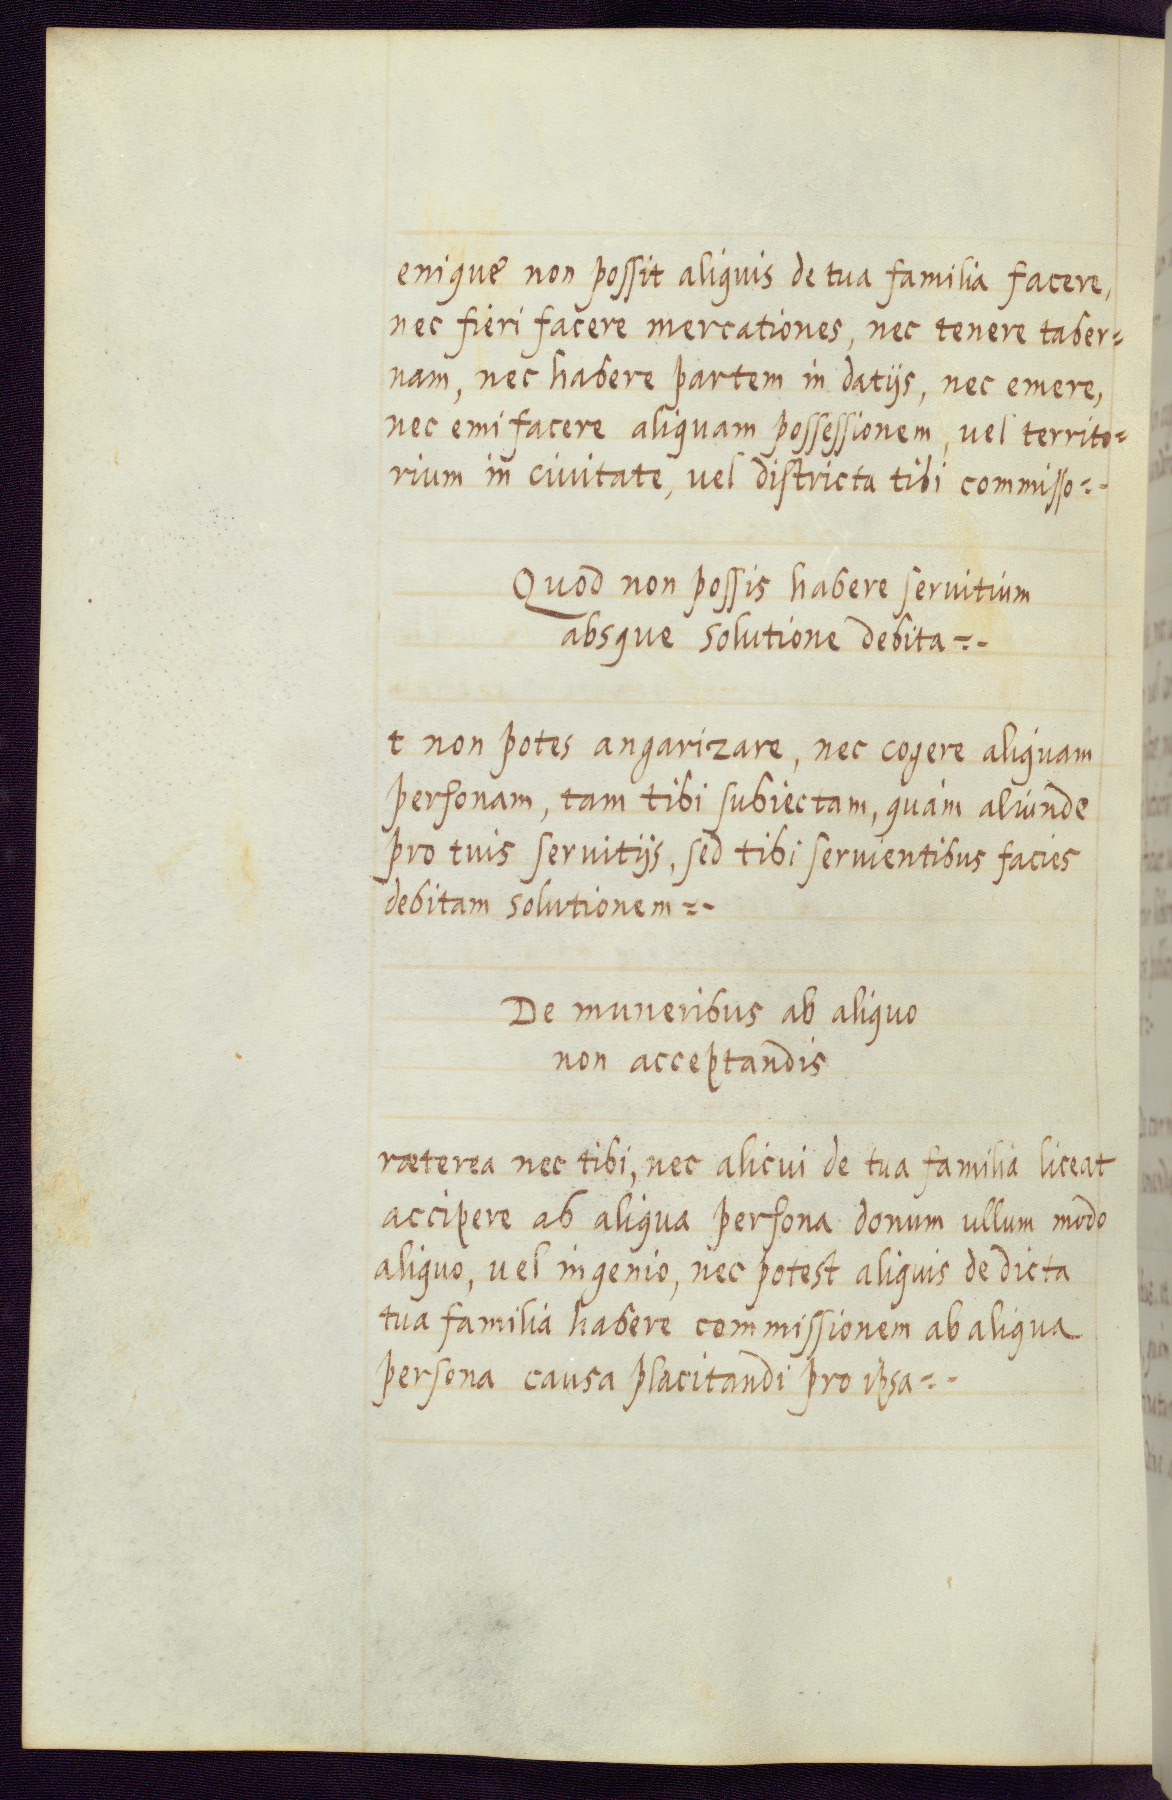 enique non possit aliquis de tua familia facere,
nec fieri facere mercationes, nec tenere taber=
nam, nec habere partem in datijs, nec emere,
nec emi facere aliquam possessionem, vel territo=
rium in ciuitate, vel districta tibi commisso=-
Quod non possis habere seruitium
absque solutione debita=-
t non potes angarizare, nec cogere aliquam
personam, tam tibi subiectam, quàm aliunde
pro tuis seruitijs, sed tibi seruientibus facies
debitam solutionem=-
De muneribus ab aliquo
non acceptandis
ræterea nec tibi, nec alicui de tua familia liceat
accipere ab aliqua persona donum ullum modo
aliquo, vel ingenio, nec potest aliquis de dicta
tua familia habere commissionem ab aliqua
persona causa placitandi pro ipsa=-